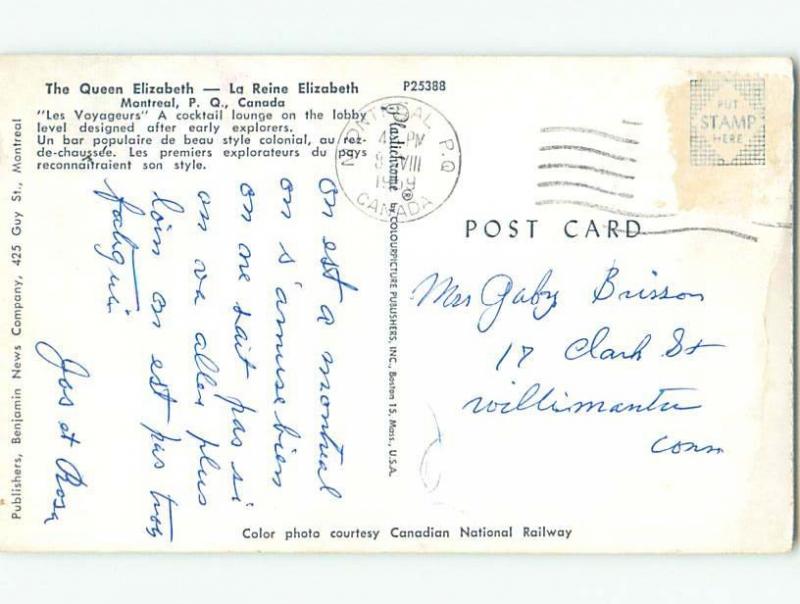 The Queen Elizabeth — La Reine Elizabeth
Montreal, P. Q., Canada
"Les Voyageurs" A cocktail lounge on the lobby
level designed after early explorers.
Un bar populaire de beau style colonial, au rez-
de-chaussée. Les premiers explorateurs du pays
reconnaîtraient son style.
P25388
MONTREAL P.Q.
PM
VIII
CANADA
PUT
STAMP
HERE
POST CARD
Mrs Gaby Brisson
17 Clark St
Willimantic
Conn
on est a montreal
on s'amuse bien
on ne sait pas si
on va aller plus
loin on est pas trop
fatigué
Jos et Rosa
Plastichrome ® by COLOURPICTURE PUBLISHERS, INC., Boston 15, Mass., U.S.A.
Publishers, Benjamin News Company, 425 Guy St., Montreal
Color photo courtesy Canadian National Railway